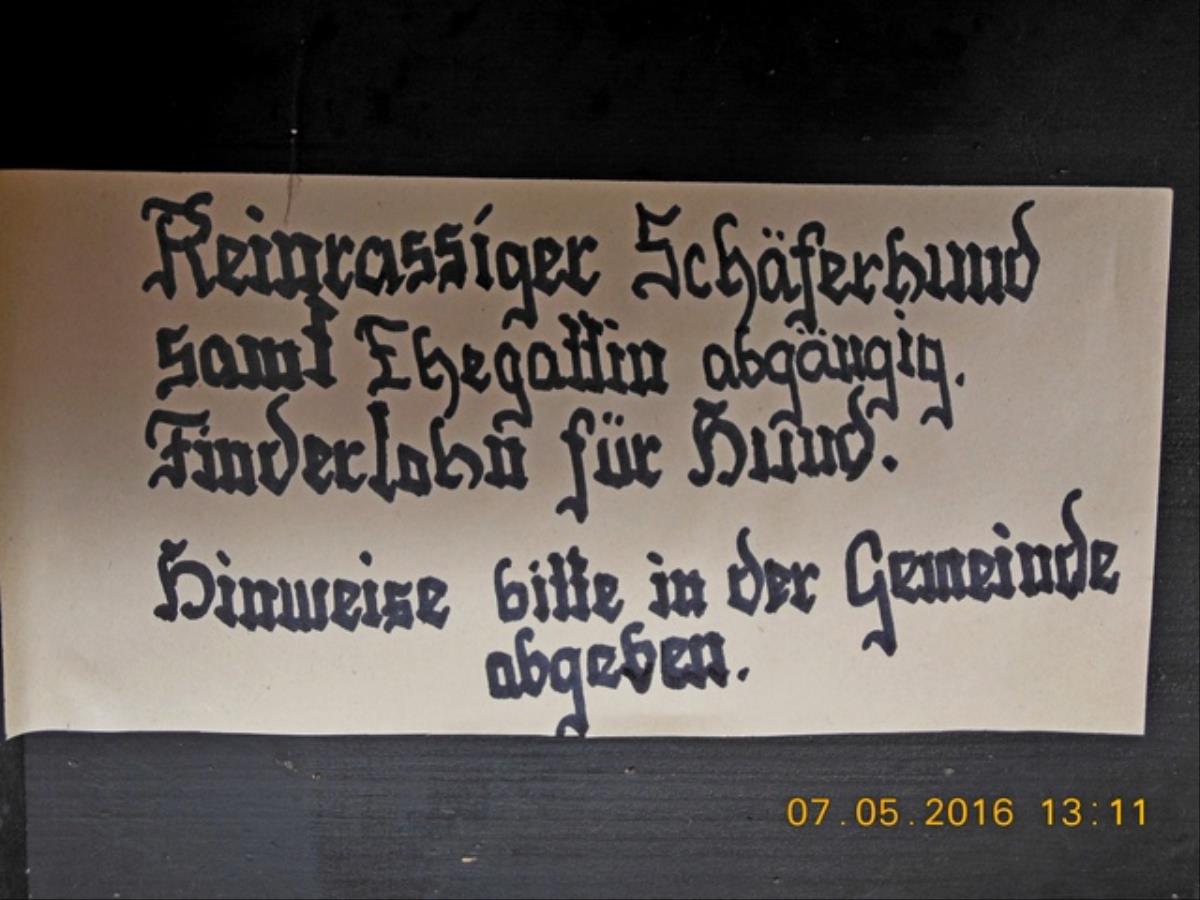 Reinrassiger Schäferhund
samt Ehegattin abgängig.
Finderlohn für Hund.
Hinweise bitte in der Gemeinde
abgeben.
07.05.2016 13:11